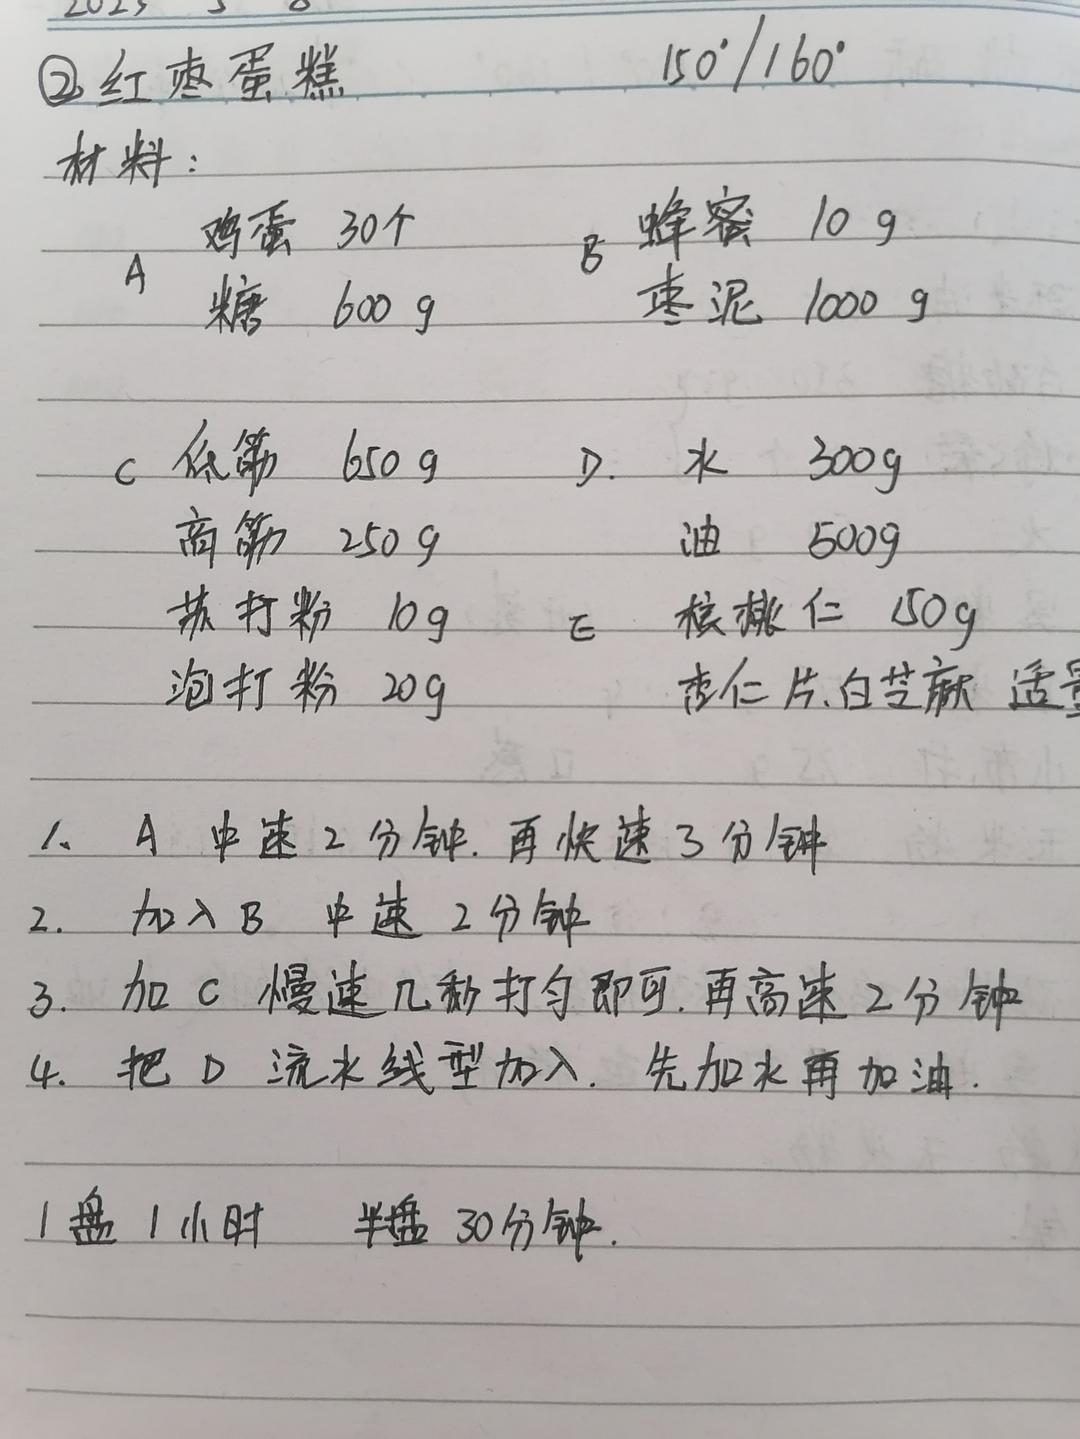 ②红枣蛋糕 150°/160°
材料:
鸡蛋 30个 蜂蜜 10g
A B
糖 600g 枣泥 1000g
C 低筋 650g D. 水 300g
高筋 250g 油 500g
苏打粉 10g E 核桃仁 150g
泡打粉 20g 杏仁片、白芝麻 适量
1、 A 中速2分钟. 再快速3分钟
2. 加入B 中速 2分钟
3. 加C 慢速几秒打匀即可. 再高速2分钟
4. 把D 流水线型加入. 先加水再加油.
1盘1小时 半盘30分钟.